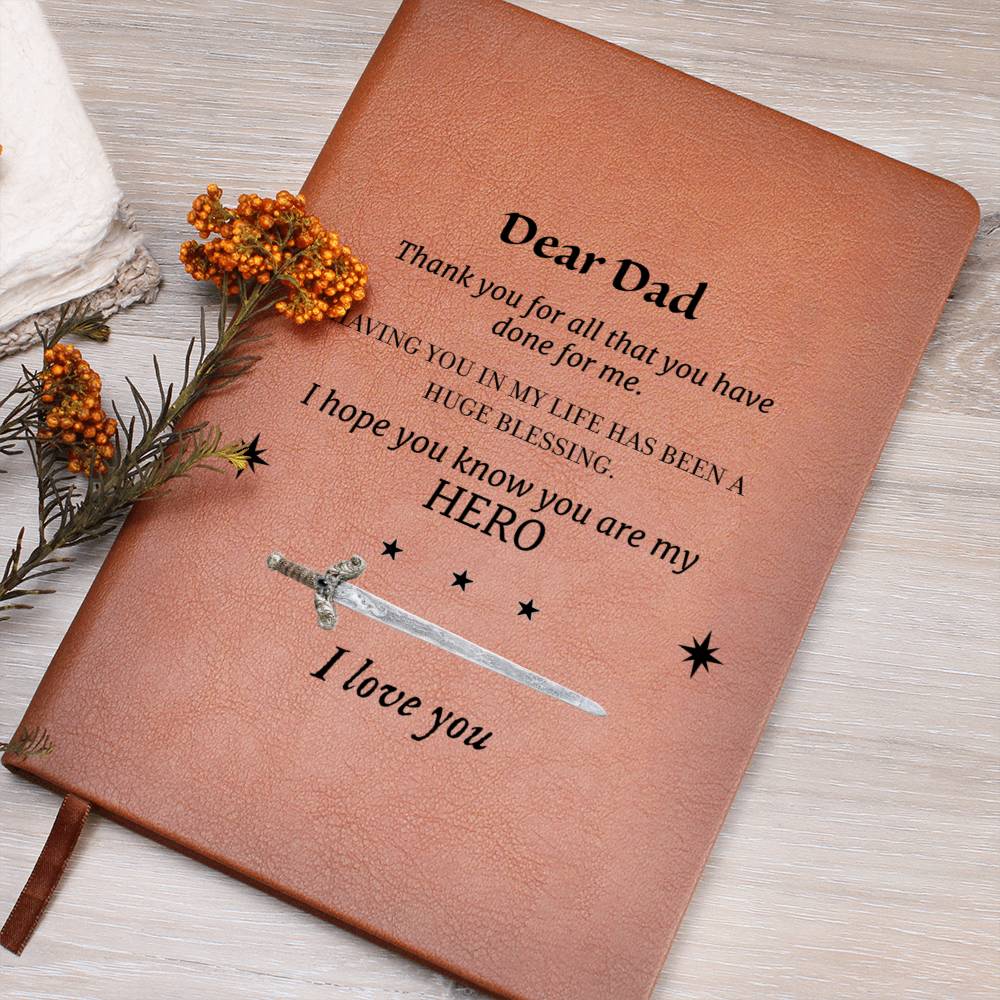 Dear Dad
Thank you for all that you have
done for me.
HAVING YOU IN MY LIFE HAS BEEN A
HUGE BLESSING.
I hope you know you are my
HERO
I love you